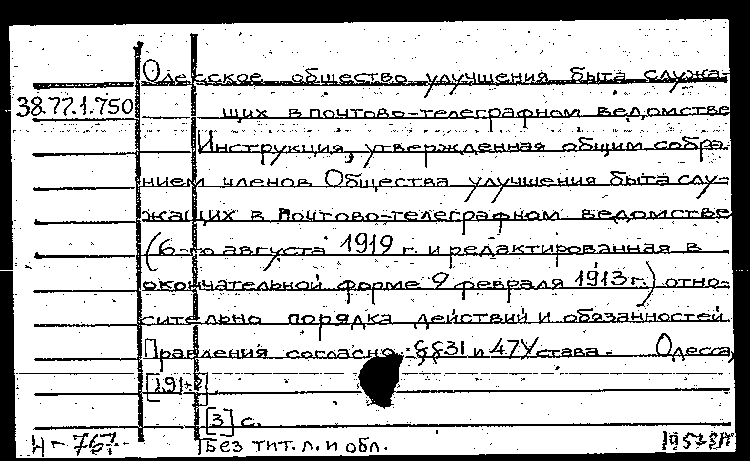 Одесское общество улучшения быта служа-
38.77.1.750 щих в почтово-телеграфном ведомстве
Инструкция, утвержденная общим собра-
нием членов Общества улучшения быта слу-
жащих в почтово-телеграфном ведомстве
(6-го августа 1919 г. и редактированная в
окончательной форме 9 февраля 1913 г.) отно-
сительно порядка действий и обязанностей
Правления согласно §§31 и 47 Устава. Одесса,
[3] с.
Н-767 Без тит. л. и обл.